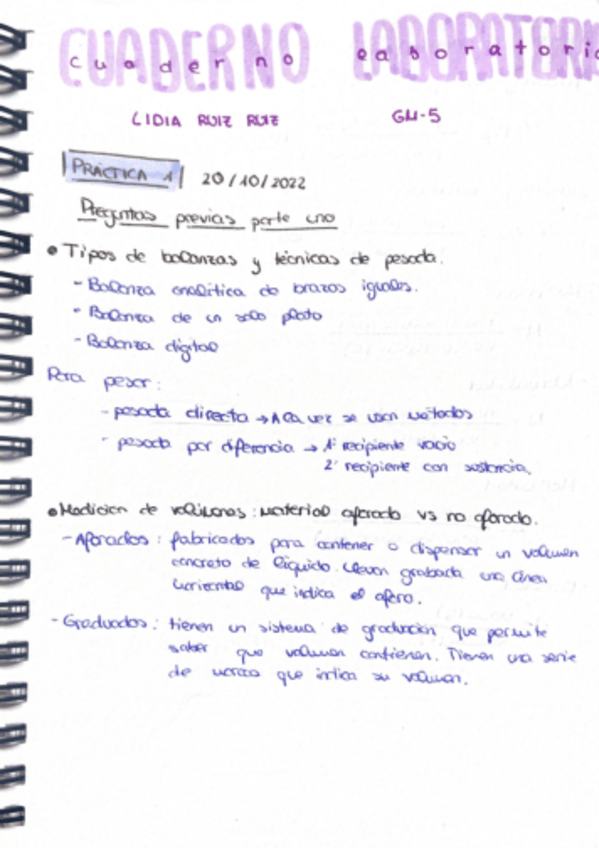 CUADERNO LABORATORIO
cuaderno laboratorio
LIDIA RUIZ RUIZ GM-5
PRÁCTICA 1 20/10/2022
Preguntas previas parte uno
• Tipos de balanzas y técnicas de pesada.
- Balanza analítica de brazos iguales.
- Balanza de un solo plato
- Balanza digital
Para pesar:
- pesada directa → A la vez se usan métodos
- pesada por diferencia → 1º recipiente vacío
2º recipiente con sustancia.
• Medición de volúmenes: material aforado vs no aforado.
- Aforados: fabricados para contener o dispensar un volumen
concreto de líquido. Llevan grabada una línea
horizontal que indica el aforo.
- Graduados: tienen un sistema de graduación que permite
saber que volumen contienen. Tienen una serie
de marcas que indica su volumen.